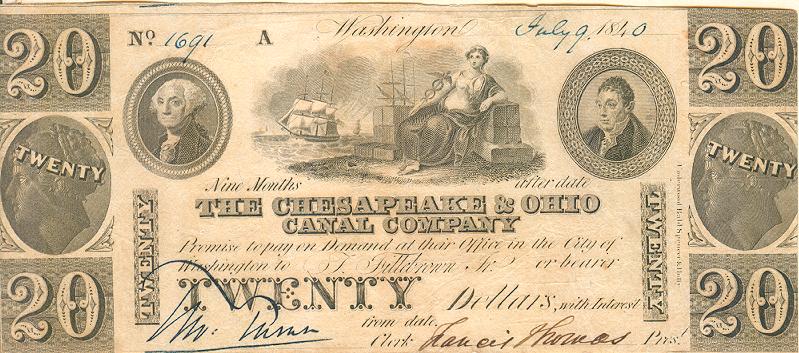 20 20
Nº 1691 A Washington July 9, 1840
TWENTY TWENTY
Nine Months after date
THE CHESAPEAKE & OHIO
CANAL COMPANY
Promise to pay on Demand at their Office in the City of
Washington to Fillebrown Jr. or bearer
TWENTY Dollars, with Interest
from date
Clerk Francis Thomas Pres.t
TWENTY TWENTY
20 20
Underwood Bald Spencer & Hufty